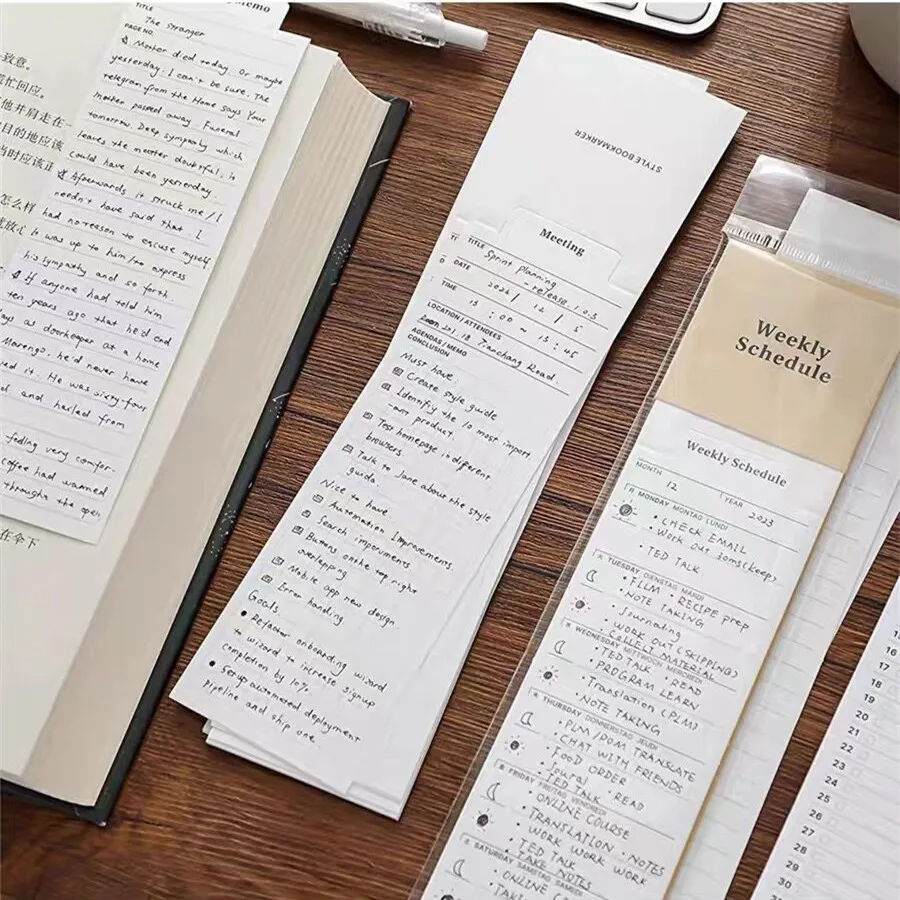 致意。
忙回应。
他并肩走在
目的地应该
当时应该正
怎么样
就放心
在伞下
Memo
TITLE
The Stranger
PAGE NO.
Mother died today. Or maybe
yesterday. I can't be sure. The
telegram from the Home says Your
mother passed away. Funeral
tomorrow. Deep sympathy which
leaves the matter doubtful; it
could have been yesterday.
Afterwards it struck me I
needn't have said that. I
had no reason to excuse myself
it was up to him to express
his sympathy and so forth.
If anyone had told him
ten years ago that he'd end
days as doorkeeper at a home
Marengo, he'd never have
ed it. He was sixty-four
and hailed from
feeling very comfor-
coffee had warmed
through the open
STYLE BOOKMARKER
Meeting
TITLE
Sprint planning
- release 1.0.3
DATE
2026/ 12 / 5
TIME
13 : 00 ~ 13 : 45
LOCATION/ATTENDEES
Room 201, 18 Tianchang Road.
AGENDAS/MEMO
CONCLUSION
Must have:
Create style guide
Identify the 10 most import
-ant product.
Test homepage in different
browsers.
Talk to Jane about the style
guide.
Nice to have
Automation Improvements.
Search improvments
Buttons on the top right
overlapping
Mobile app new design
Error handling
Goals
• Refactor onboarding
to wizard to increase signup
completion by 10%.
• Setup automated deployment
pipeline and ship one.
Weekly
Schedule
Weekly Schedule
MONTH 12 YEAR 2023
MONDAY MONTAG LUNDI
• CHECK EMAIL
• Work out 30ms(keep)
• TED TALK
TUESDAY DIENSTAG MARDI
• FILM • RECIPE prep
• NOTE TAKING
• Journating
• WORK OUT (SKIPPING)
• COLLECT MATERIAL
WEDNESDAY MITTWOCH MERCREDI
• TED TALK • READ
• PROGRAM LEARN
• Translation (PLM)
• NOTE TAKING
THURSDAY DONNERSTAG JEUDI
• PLM/DOM TRANSLATE
• CHAT WITH FRIENDS
• FOOD ORDER
• Joural • READ
• TED TALK
FRIDAY FREITAG VENDREDI
• ONLINE COURSE
• TRANSLATION • NOTES
• WORK WORK WORK
• TED TALK
• TAKE NOTES
SATURDAY SAMSTAG SAMEDI
• ONLINE
15
16
17
18
19
20
21
22
23
24
25
26
27
28
29
30